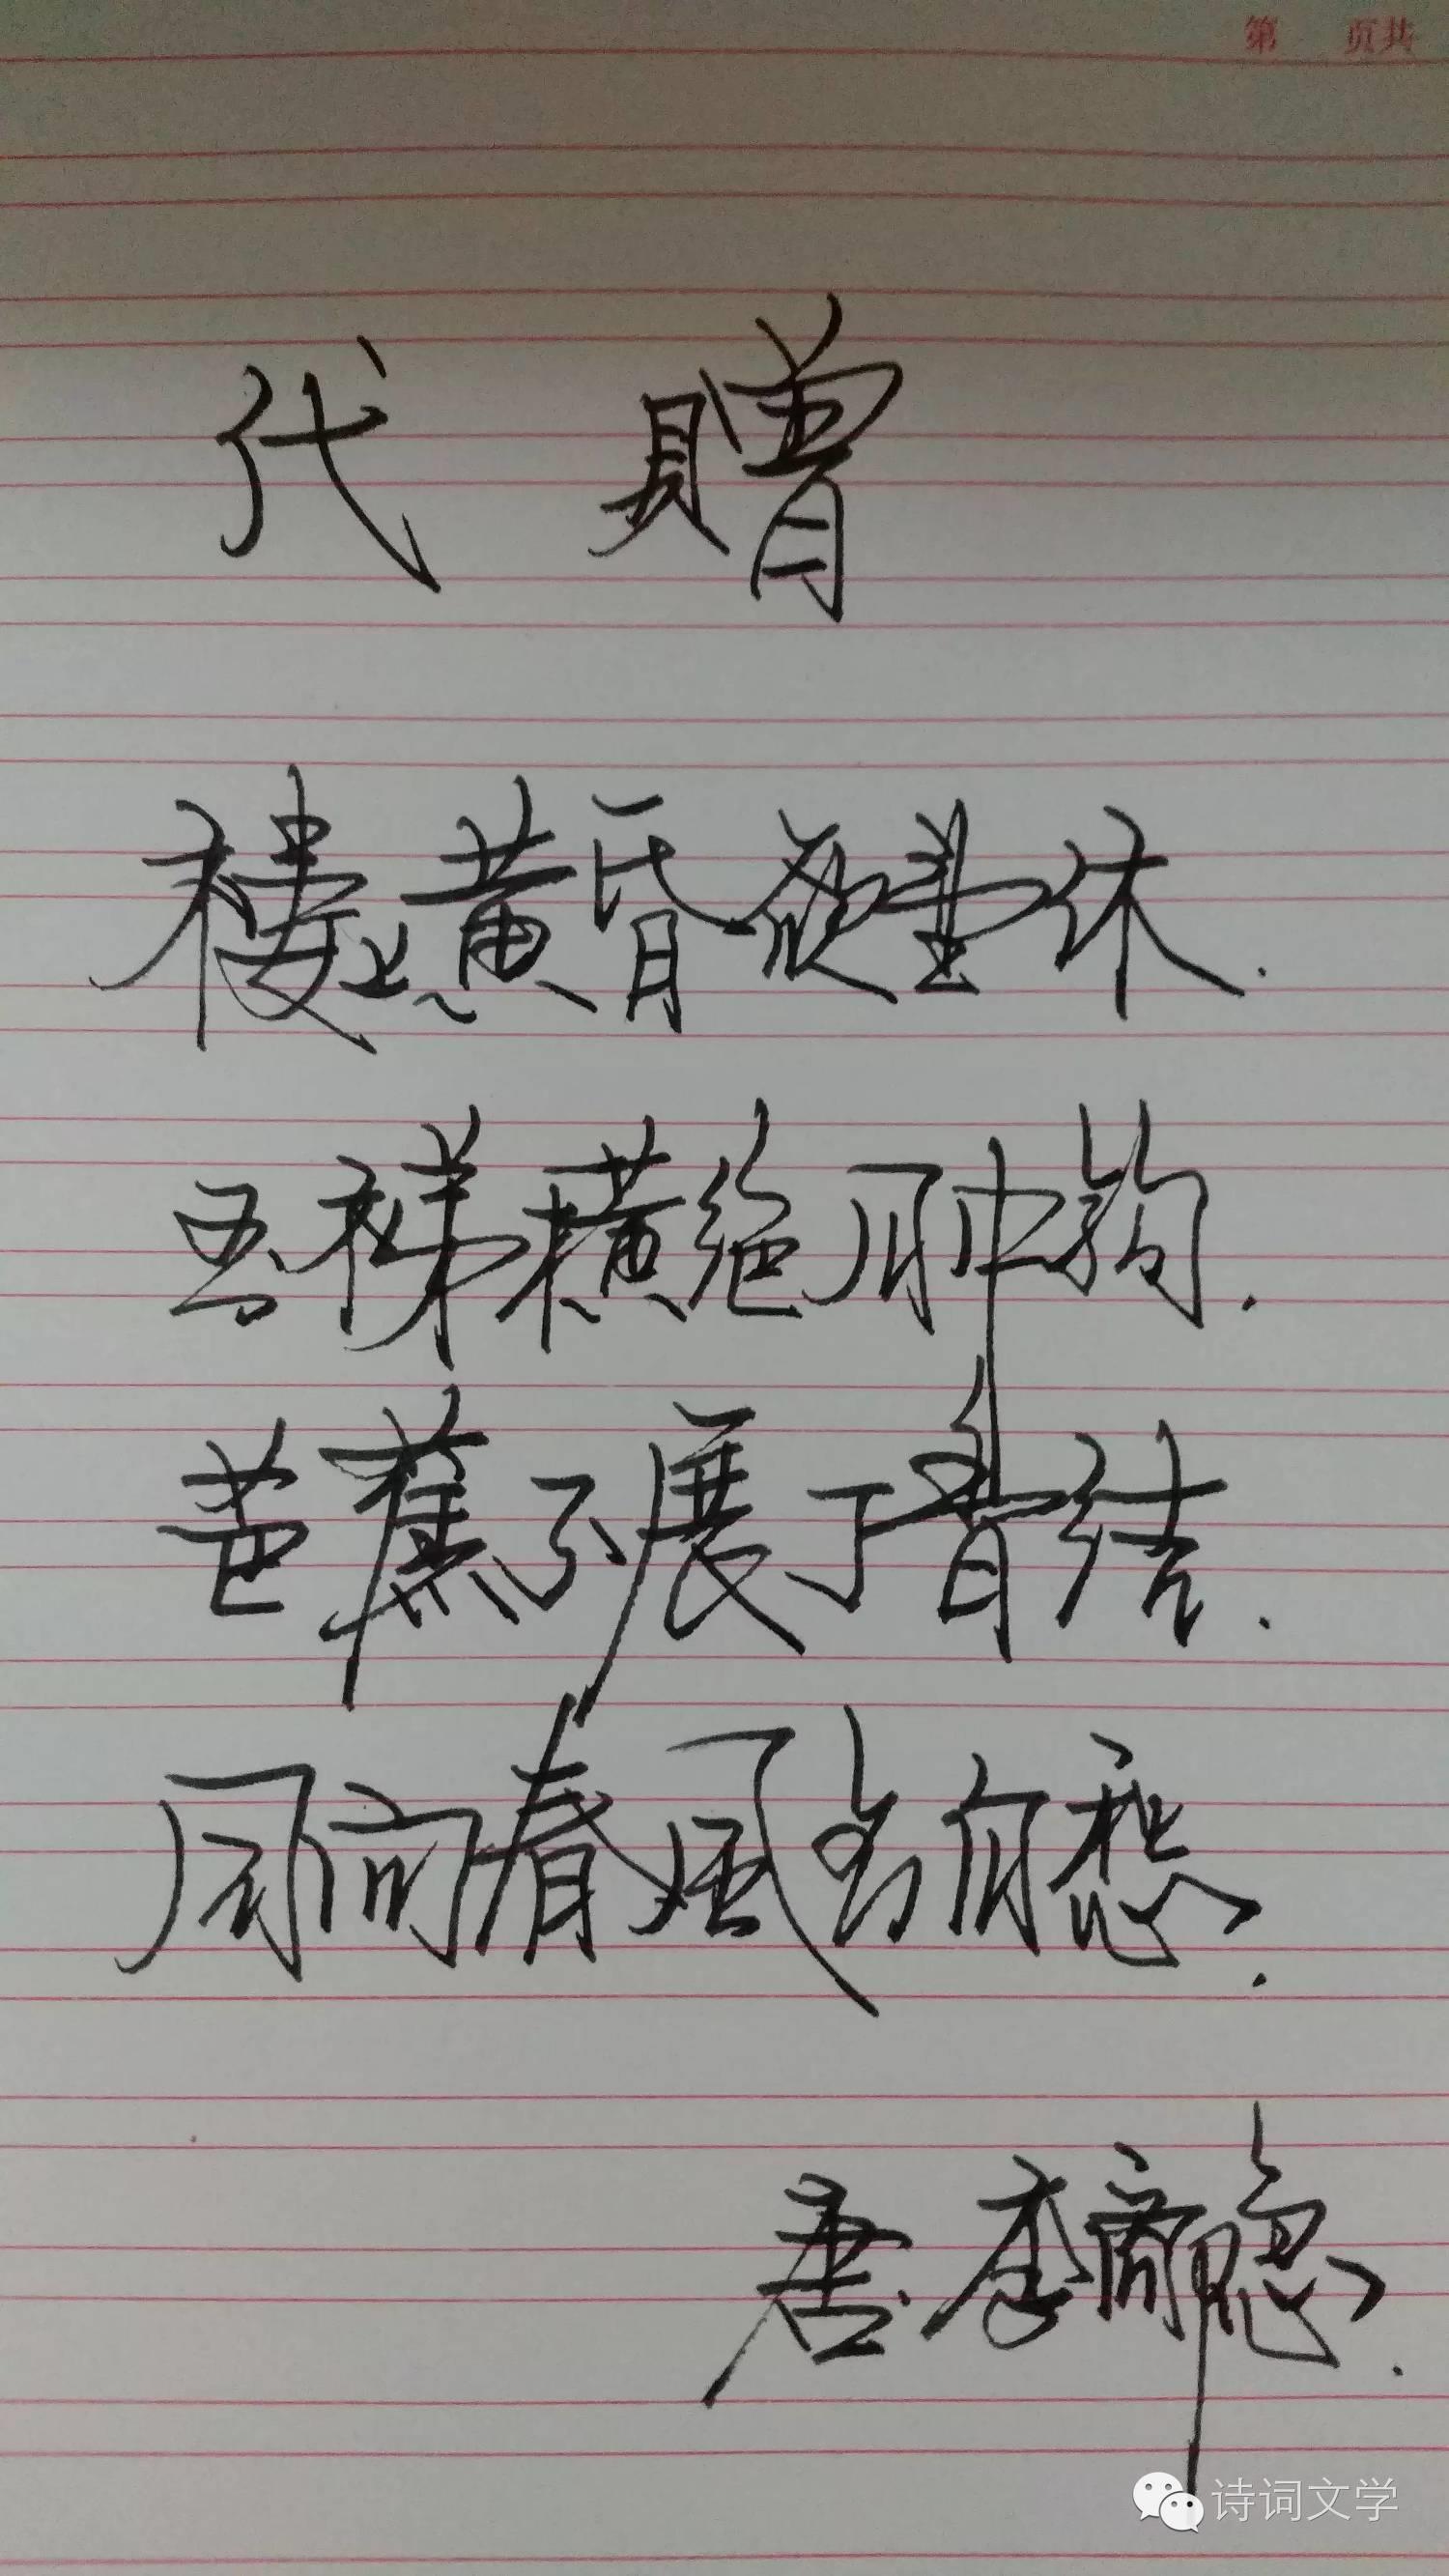 第 页共
代赠
樓上黄昏欲望休.
玉梯横绝月中钩.
芭蕉不展丁香结.
同向春风各自愁.
唐.李商隐.
诗词文学